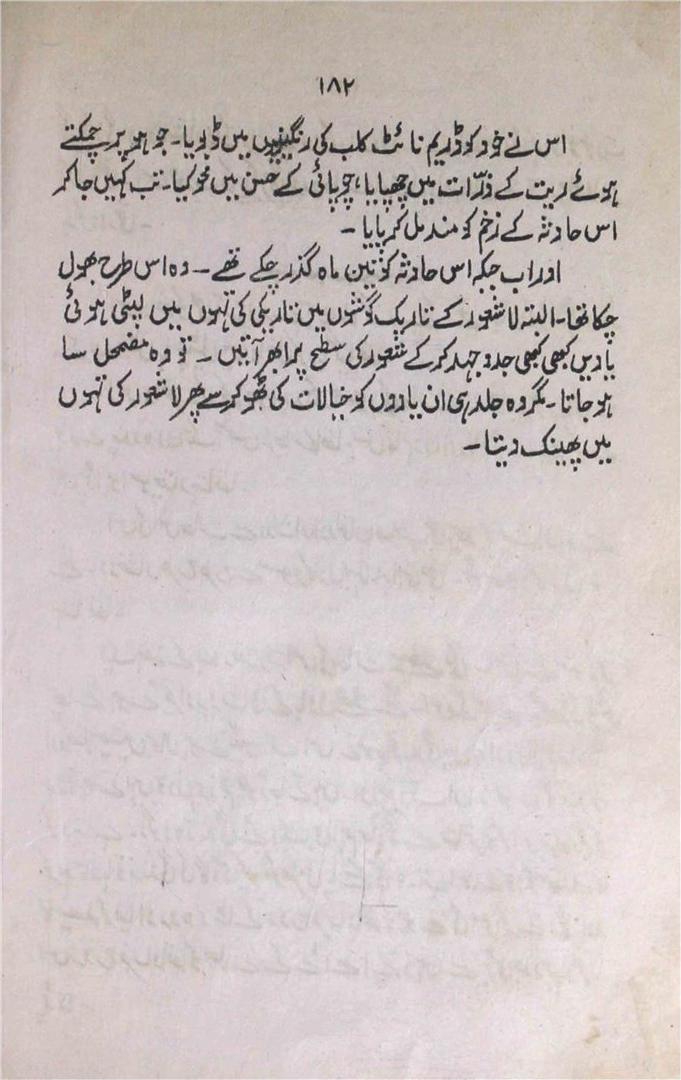 ۱۸۲
اس نے خود کو ڈریم نائٹ کلب کی رنگینیوں میں ڈبویا۔ جوہو پر چمکتے
ہوئے ریت کے ذرّات میں چھپایا، چوپائی کے حسن میں محو کیا۔ تب کہیں جاکر
اس حادثہ کے زخم کو مندمل کر پایا ۔
اور اب جبکہ اس حادثہ کو تین ماہ گذر چکے تھے ۔ وہ اس طرح بھول
چکا تھا۔ البتہ لاشعور کے تاریک گوشوں میں تاریکی کی تہوں میں لپٹی ہوئی
یادیں کبھی کبھی جدوجہد کرکے شعور کی سطح پر ابھر آتیں ۔ تو وہ مضمحل سا
ہوجاتا۔ مگر وہ جلد ہی ان یادوں کو خیالات کی ٹھوکر سے پھر لاشعور کی تہوں
میں پھینک دیتا ۔